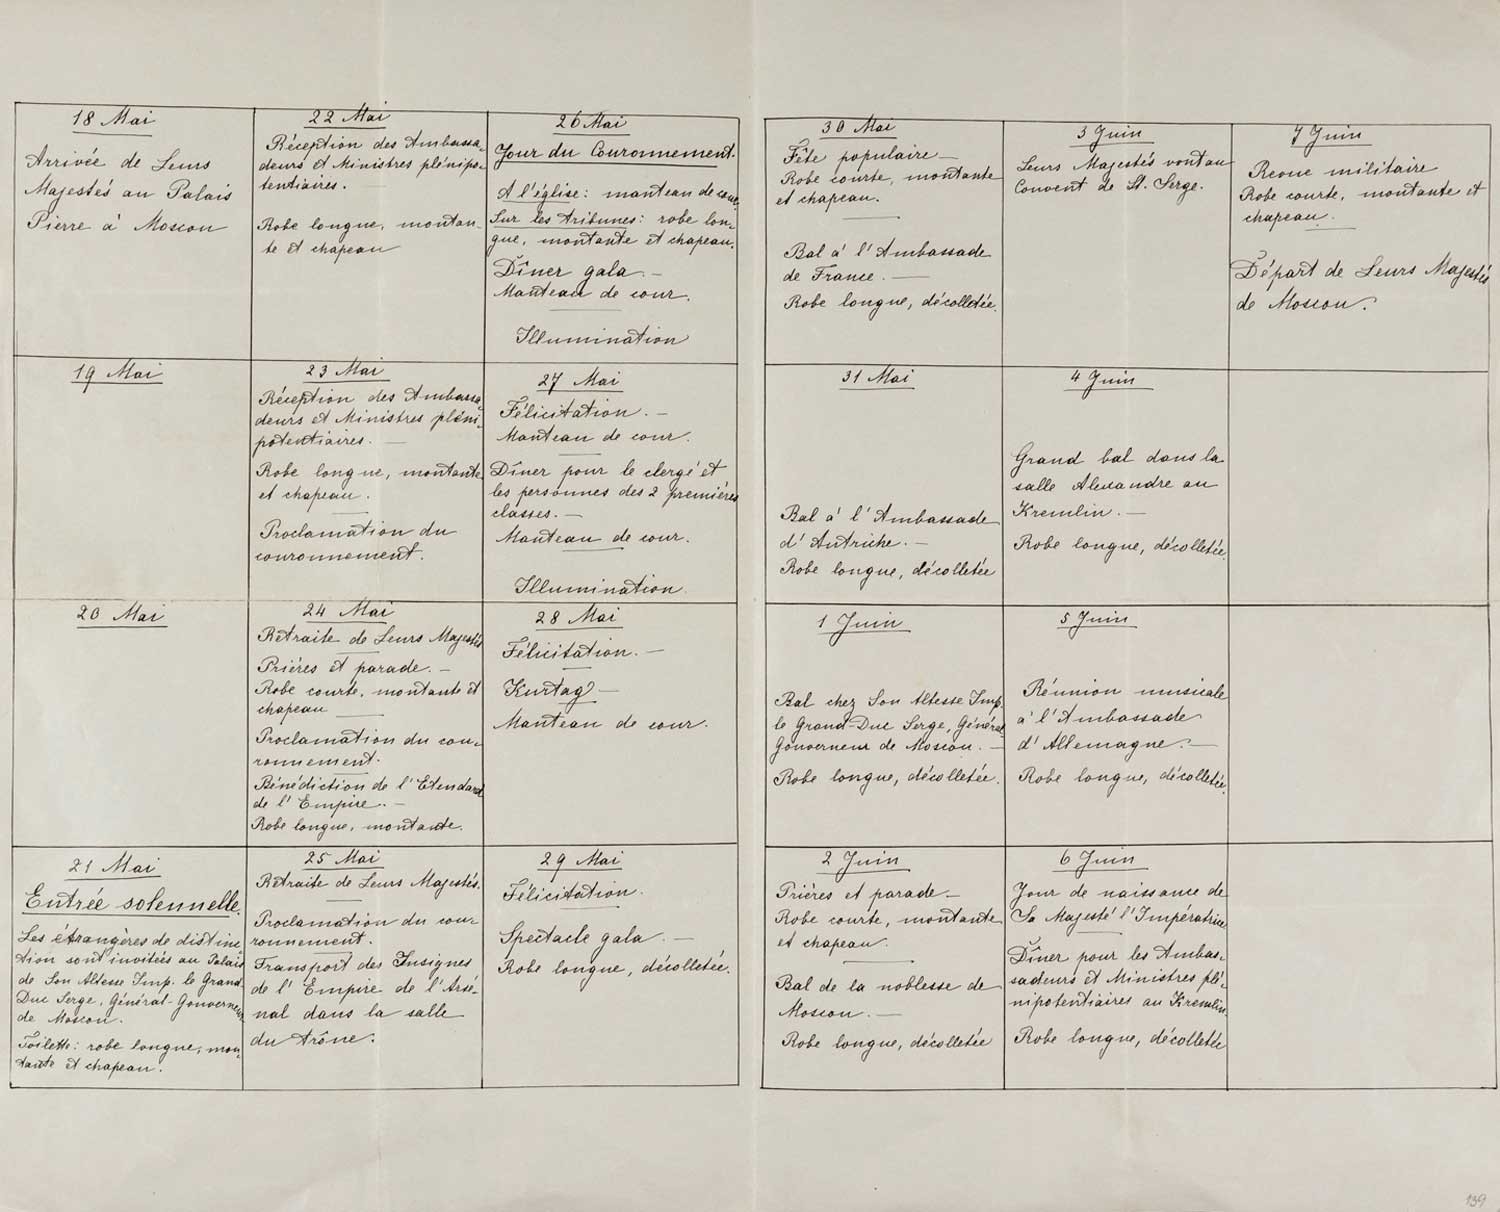 18 Mai
Arrivée de Leurs
Majestés au Palais
Pierre à Moscou
19 Mai
20 Mai
21 Mai
Entrée solennelle.
Les étrangères de distinc-
tion sont invitées au Palais
de Son Altesse Imp. le Grand-
Duc Serge, Général-Gouverneur
de Moscou.
Toilette: robe longue, mon-
tante et chapeau.
22 Mai
Réception des Ambassa-
deurs et Ministres plénipo-
tentiaires.
Robe longue, montan-
te et chapeau
23 Mai
Réception des Ambassa-
deurs et Ministres pléni-
potentiaires.
Robe longue, montante
et chapeau.
Proclamation du
couronnement.
24 Mai
Retraite de Leurs Majestés
Prières et parade.
Robe courte, montante et
chapeau
Proclamation du cou-
ronnement.
Bénédiction de l'Etendard
de l'Empire.
Robe longue, montante.
25 Mai
Retraite de Leurs Majestés.
Proclamation du cou-
ronnement.
Transport des Insignes
de l'Empire de l'Arse-
nal dans la salle
du trône.
26 Mai
Jour du Couronnement.
A l'église: manteau de cour.
Sur les tribunes: robe lon-
gue, montante et chapeau.
Dîner gala.
Manteau de cour.
Illumination
27 Mai
Félicitation.
Manteau de cour.
Dîner pour le clergé et
les personnes des 2 premières
classes.
Manteau de cour.
Illumination
28 Mai
Félicitation.
Kurtag
Manteau de cour.
29 Mai
Félicitation.
Spectacle gala.
Robe longue, décolletée.
30 Mai
Fête populaire
Robe courte, montante
et chapeau.
Bal à l'Ambassade
de France.
Robe longue, décolletée.
31 Mai
Bal à l'Ambassade
d'Autriche.
Robe longue, décolletée
1 Juin
Bal chez Son Altesse Imp.
le Grand-Duc Serge, Général-
Gouverneur de Moscou.
Robe longue, décolletée.
2 Juin
Prières et parade
Robe courte, montante
et chapeau.
Bal de la noblesse de
Moscou.
Robe longue, décolletée
3 Juin
Leurs Majestés vont au
Couvent de St. Serge.
4 Juin
Grand bal dans la
salle Alexandre au
Kremlin.
Robe longue, décolletée.
5 Juin
Réunion musicale
à l'Ambassade
d'Allemagne.
Robe longue, décolletée.
6 Juin
Jour de naissance de
Sa Majesté l'Impératrice
Dîner pour les Ambas-
sadeurs et Ministres plé-
nipotentiaires au Kremlin.
Robe longue, décolletée
7 Juin
Revue militaire
Robe courte, montante et
chapeau.
Départ de Leurs Majestés
de Moscou.
139